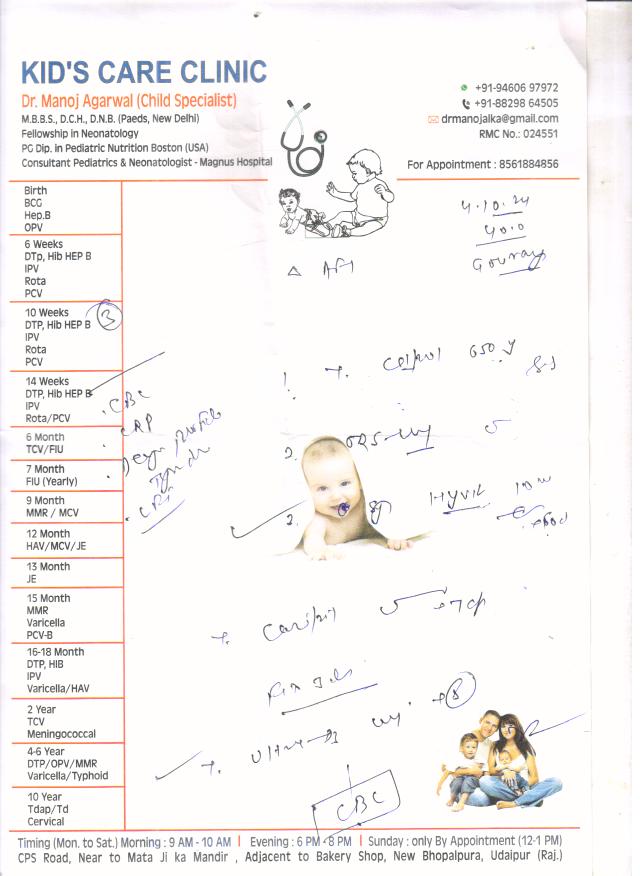 KID'S CARE CLINIC
Dr. Manoj Agarwal (Child Specialist)
M.B.B.S., D.C.H., D.N.B. (Paeds, New Delhi)
Fellowship in Neonatology
PG Dip. in Pediatric Nutrition Boston (USA)
Consultant Pediatrics & Neonatologist - Magnus Hospital
+91-94606 97972
+91-88298 64505
drmanojalka@gmail.com
RMC No.: 024551
For Appointment : 8561884856
Birth
BCG
Hep.B
OPV
6 Weeks
DTp, Hib HEP B
IPV
Rota
PCV
10 Weeks
DTP, Hib HEP B
IPV
Rota
PCV
14 Weeks
DTP, Hib HEP B
IPV
Rota/PCV
6 Month
TCV/FIU
7 Month
FIU (Yearly)
9 Month
MMR / MCV
12 Month
HAV/MCV/JE
13 Month
JE
15 Month
MMR
Varicella
PCV-B
16-18 Month
DTP, HIB
IPV
Varicella/HAV
2 Year
TCV
Meningococcal
4-6 Year
DTP/OPV/MMR
Varicella/Typhoid
10 Year
Tdap/Td
Cervical
3
CBC
CRP
4.10.24
40.0
Gourav
650
2. ORS
CBC
Timing (Mon. to Sat.) Morning : 9 AM - 10 AM | Evening : 6 PM - 8 PM | Sunday : only By Appointment (12-1 PM)
CPS Road, Near to Mata Ji ka Mandir , Adjacent to Bakery Shop, New Bhopalpura, Udaipur (Raj.)